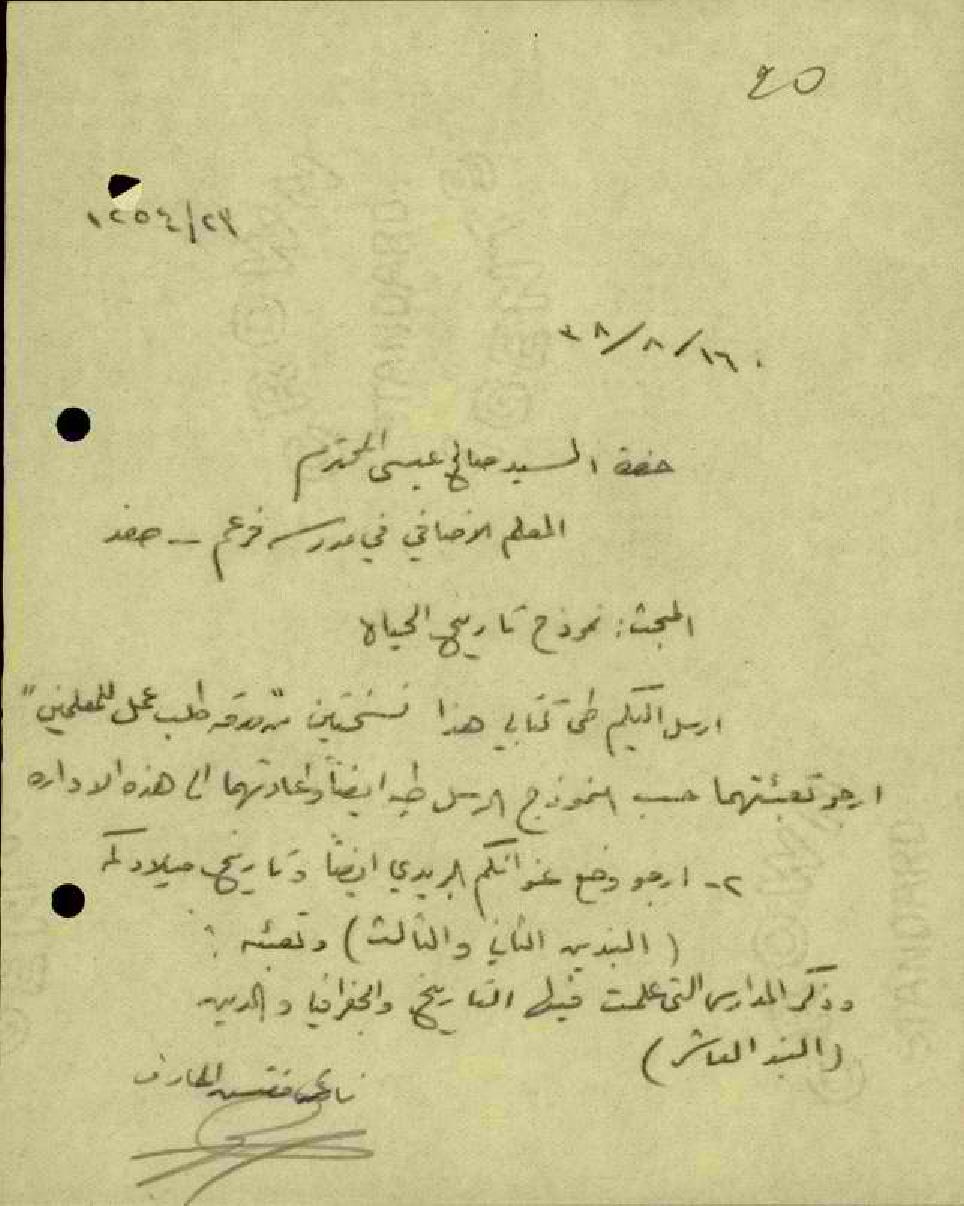 ٤٥
١٢٥٤/٢٣
٣٨/٨/١٦
حضرة السيد صالح عيسى المحترم
المعلم الاضافي في مدرسة فرعم - صفد
المبحث: نموذج تاريخ الحياة
ارسل اليكم طي كتابي هذا نسختين "ورقة طلب عمل للمعلمين"
ارجو تعبئتهما حسب النموذج المرسل طيه ايضاً واعادتهما الى هذه الاداره
٢- ارجو وضع عنوانكم البريدي ايضاً وتاريخ ميلادكم
(البندين الثاني والثالث) وتعبئة :
وذكر المدارس التي علمت فيها التاريخ والجغرافيا والدين
(البند العاشر)
المعارف